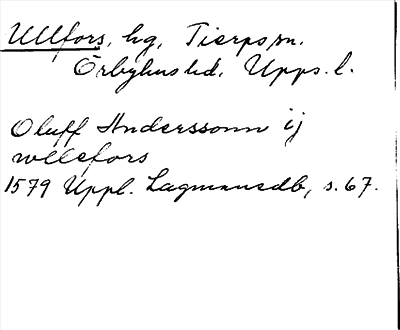 Ullfors, hg, Tierps sn.
Örbyhus hd. Upps. l.
Oluff Anderssonn ij
wllefors
1579 Uppl. Lagmansdb, s. 67.